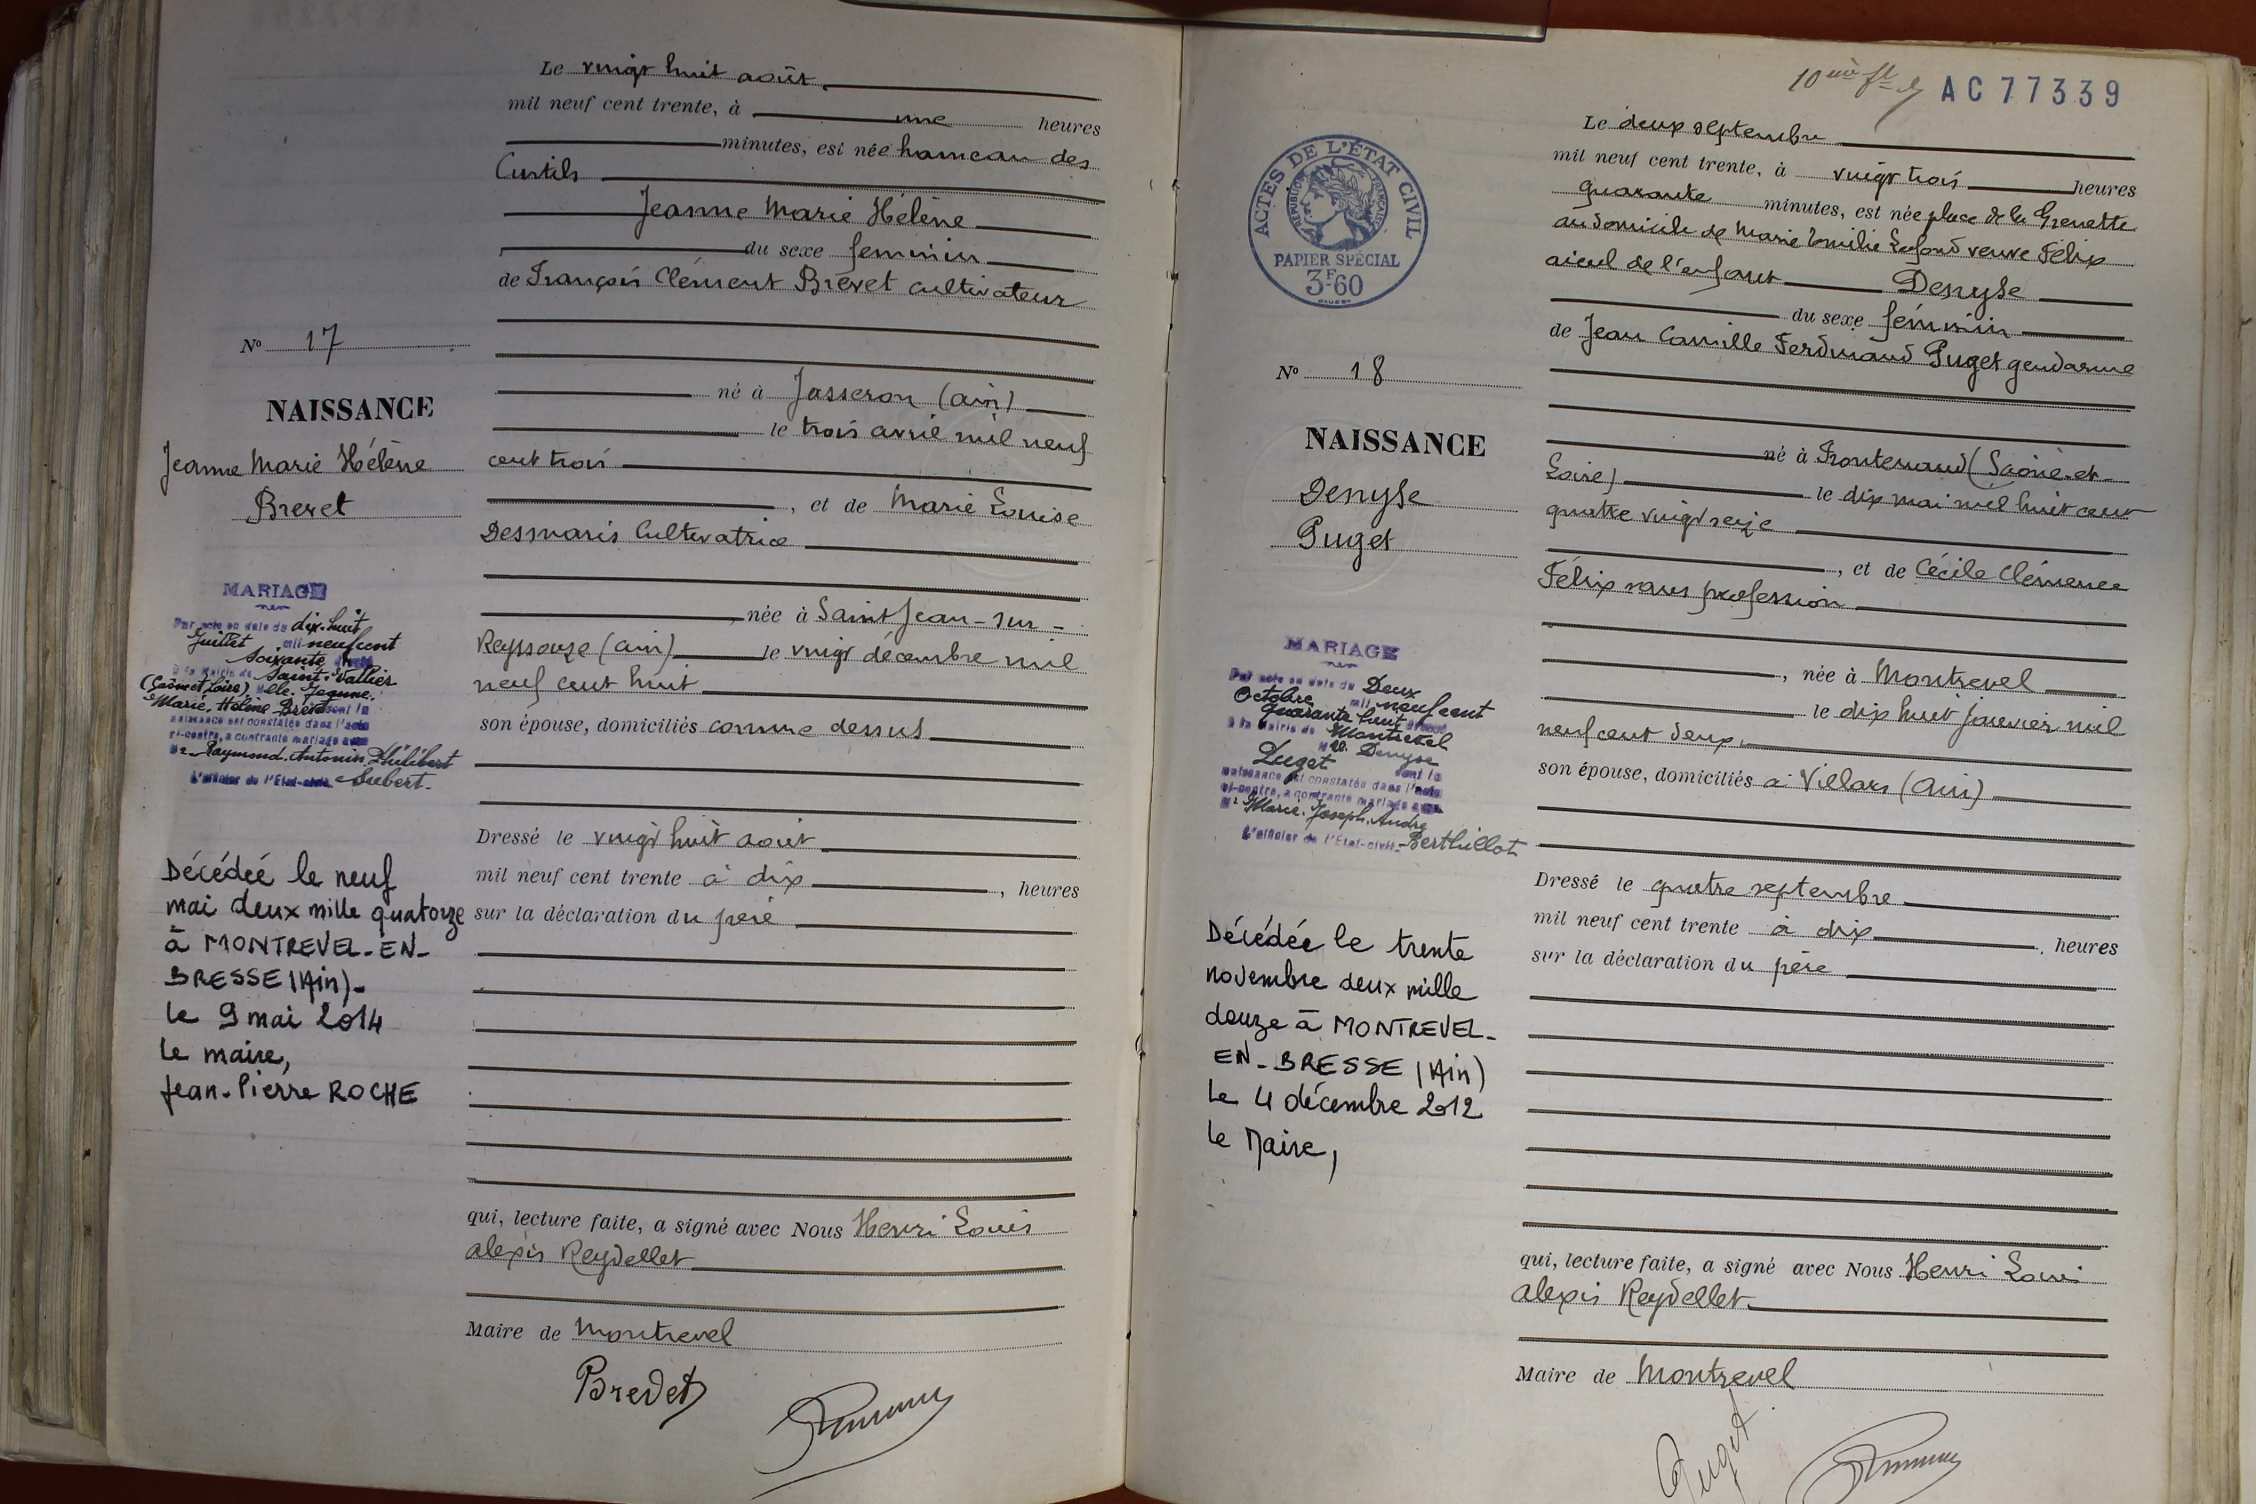 Le vingt huit août
mil neuf cent trente, à une heures
minutes, est née hameau des
Curtils
Jeanne Marie Hélène
du sexe feminin
de François Clément Brevet cultivateur
né à Jasseron (ain)
le trois avril mil neuf
cent trois
, et de Marie Louise
Desmaris Cultivatrice
née à Saint Jean-sur-
Reyssouze (ain) le vingt décembre mil
neuf cent huit
son épouse, domiciliés comme dessus
Dressé le vingt huit août
mil neuf cent trente à dix, heures
sur la déclaration du père
qui, lecture faite, a signé avec Nous Henri Louis
alexis Reydellet
Maire de Montrevel
Brevet
No 17
NAISSANCE
Jeanne Marie Hélène
Brevet
MARIAGE
Par acte en date du dix-huit
Juillet mil neuf cent
Soixante
à la Mairie de Saint-Vallier
(Saône et Loire) Mlle. Jeanne.
Marie. Hélène Brevet dont la
naissance est constatée dans l'acte
ci-contre, a contracté mariage avec
Mr Raymond. Antonin Philibert
L'officier de l'Etat-civil Subert.
Décédée le neuf
mai deux mille quatorze
à MONTREVEL-EN-
BRESSE (Ain)-
le 9 mai 2014
le maire,
Jean-Pierre ROCHE
AC 77339
ACTES DE L'ÉTAT CIVIL
RÉPUBLIQUE FRANÇAISE
PAPIER SPÉCIAL
3F60
Le deux septembre
mil neuf cent trente, à vingt trois heures
quarante minutes, est née place de la Grenette
au domicile de Marie Emilie Lafond veuve Félix
aieul de l'enfant Denyse
du sexe féminin
de Jean Camille Ferdinand Puget gendarme
né à Frontenaud (Saône-et-
Loire) le dix mai mil huit cent
quatre vingt seize
, et de Cécile Clémence
Félix sans profession
, née à Montrevel
le dix huit janvier mil
neuf cent deux,
son épouse, domiciliés à Villars (Ain)
Dressé le quatre septembre
mil neuf cent trente à dix, heures
sur la déclaration du père
qui, lecture faite, a signé avec Nous Henri Louis
alexis Reydellet
Maire de Montrevel
Puget
No 18
NAISSANCE
Denyse
Puget
MARIAGE
Par acte en date du Deux
Octobre mil neuf cent
quarante huit
à la Mairie de Montrevel
Mlle. Denyse
Puget dont la
naissance est constatée dans l'acte
ci-contre, a contracté mariage avec
Mr Marie. Joseph. André
L'officier de l'Etat-civil Berthillot
Décédée le trente
novembre deux mille
douze à MONTREVEL-
EN-BRESSE (Ain)
le 4 décembre 2012
le Maire,